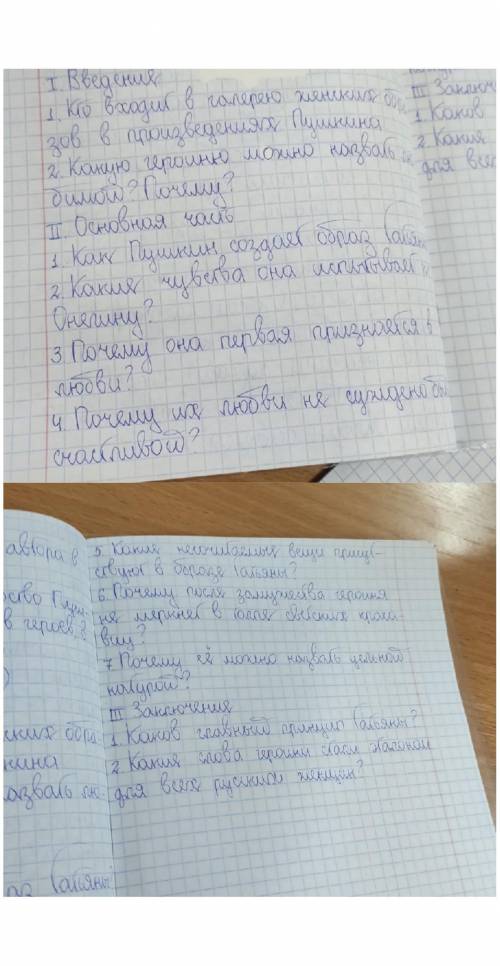 I. Введения
1. Кто входит в галерею женских обра-
зов в произведениях Пушкина
2. Какую героиню можно назвать лю-
бимой? Почему?
II. Основная часть
1. Как Пушкин создаёт образ Татьяны
2. Какия чувства она испытывает к
Онегину?
3. Почему она первая признаётся в
любви?
4. Почему их любви не суждено бы
счастливой?
III Заключе
1. Каков
2. Какия
для все
автора в
ство Пуш-
в героев в
ских обра-
кина
назвать лю-
раз Татьяны
5. Какие вещи присут-
ствуют в Татьяны?
6. Почему после замужества героиня
не меркнет в толпе светских краса-
виц?
7. Почему её можно назвать цельной
натурой?
III Заключения
1. Каков главный принцип Татьяны?
2. Какия слова героини стали эталоном
для всех русских женщин?